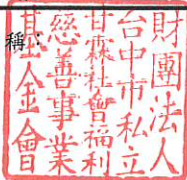 財團法人
台中市私立
甘霖社會福利
慈善事業
基金會
稱：